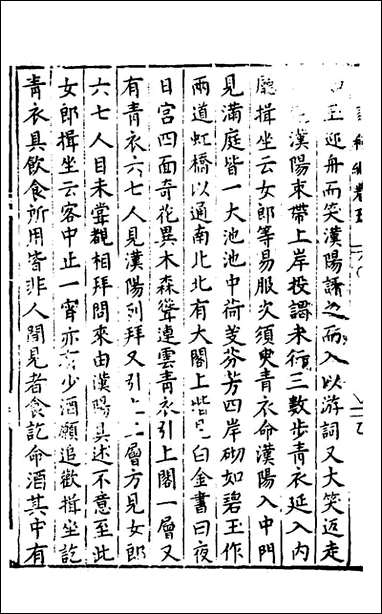 玉迎舟而笑漢陽訝之而入以游詞又大笑返走
漢陽束帶上岸投謁未行三數步青衣延入內
廳揖坐云女郎等易服次須臾青衣命漢陽入中門
見滿庭皆一大池池中荷芰芬芳四岸砌如碧玉作
兩道虹橋以通南北北有大閣上堦見白金書曰夜
日宮四面奇花異木森聳連雲青衣引上閣一層又
有青衣六七人見漢陽列拜又引上二層方見女郎
六七人目未甞覩相拜問來由漢陽具述不意至此
女郎揖坐云客中止一宵亦有少酒願追歡揖坐訖
青衣具飲食所用皆非人間見者食訖命酒其中有